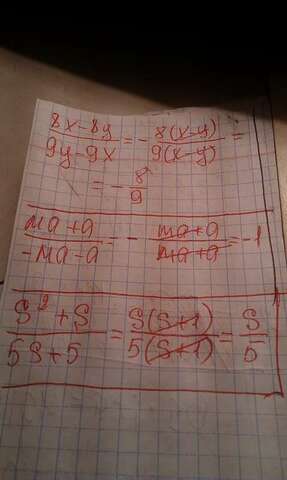 (8x-8y)/(9y-9x) = - 8(x-y)/9(x-y) =
= - 8/9
(ma+a)/(-ma-a) = - (ma+a)/(ma+a) = -1
(S²+S)/(5S+5) = S(S+1)/5(S+1) = S/5